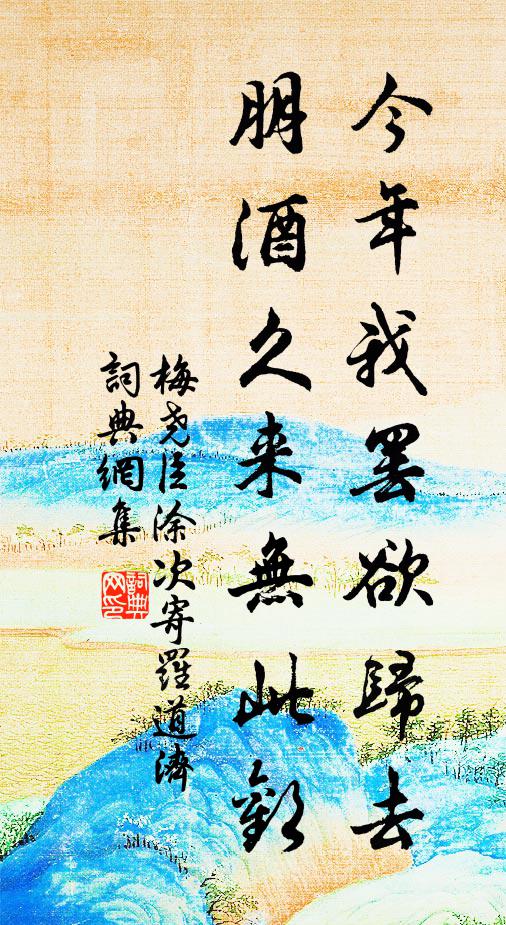 今年我罢欲歸去
朋酒久来無此歡
梅尧臣涂次寄羅道濟
詞典網集
詞典网印